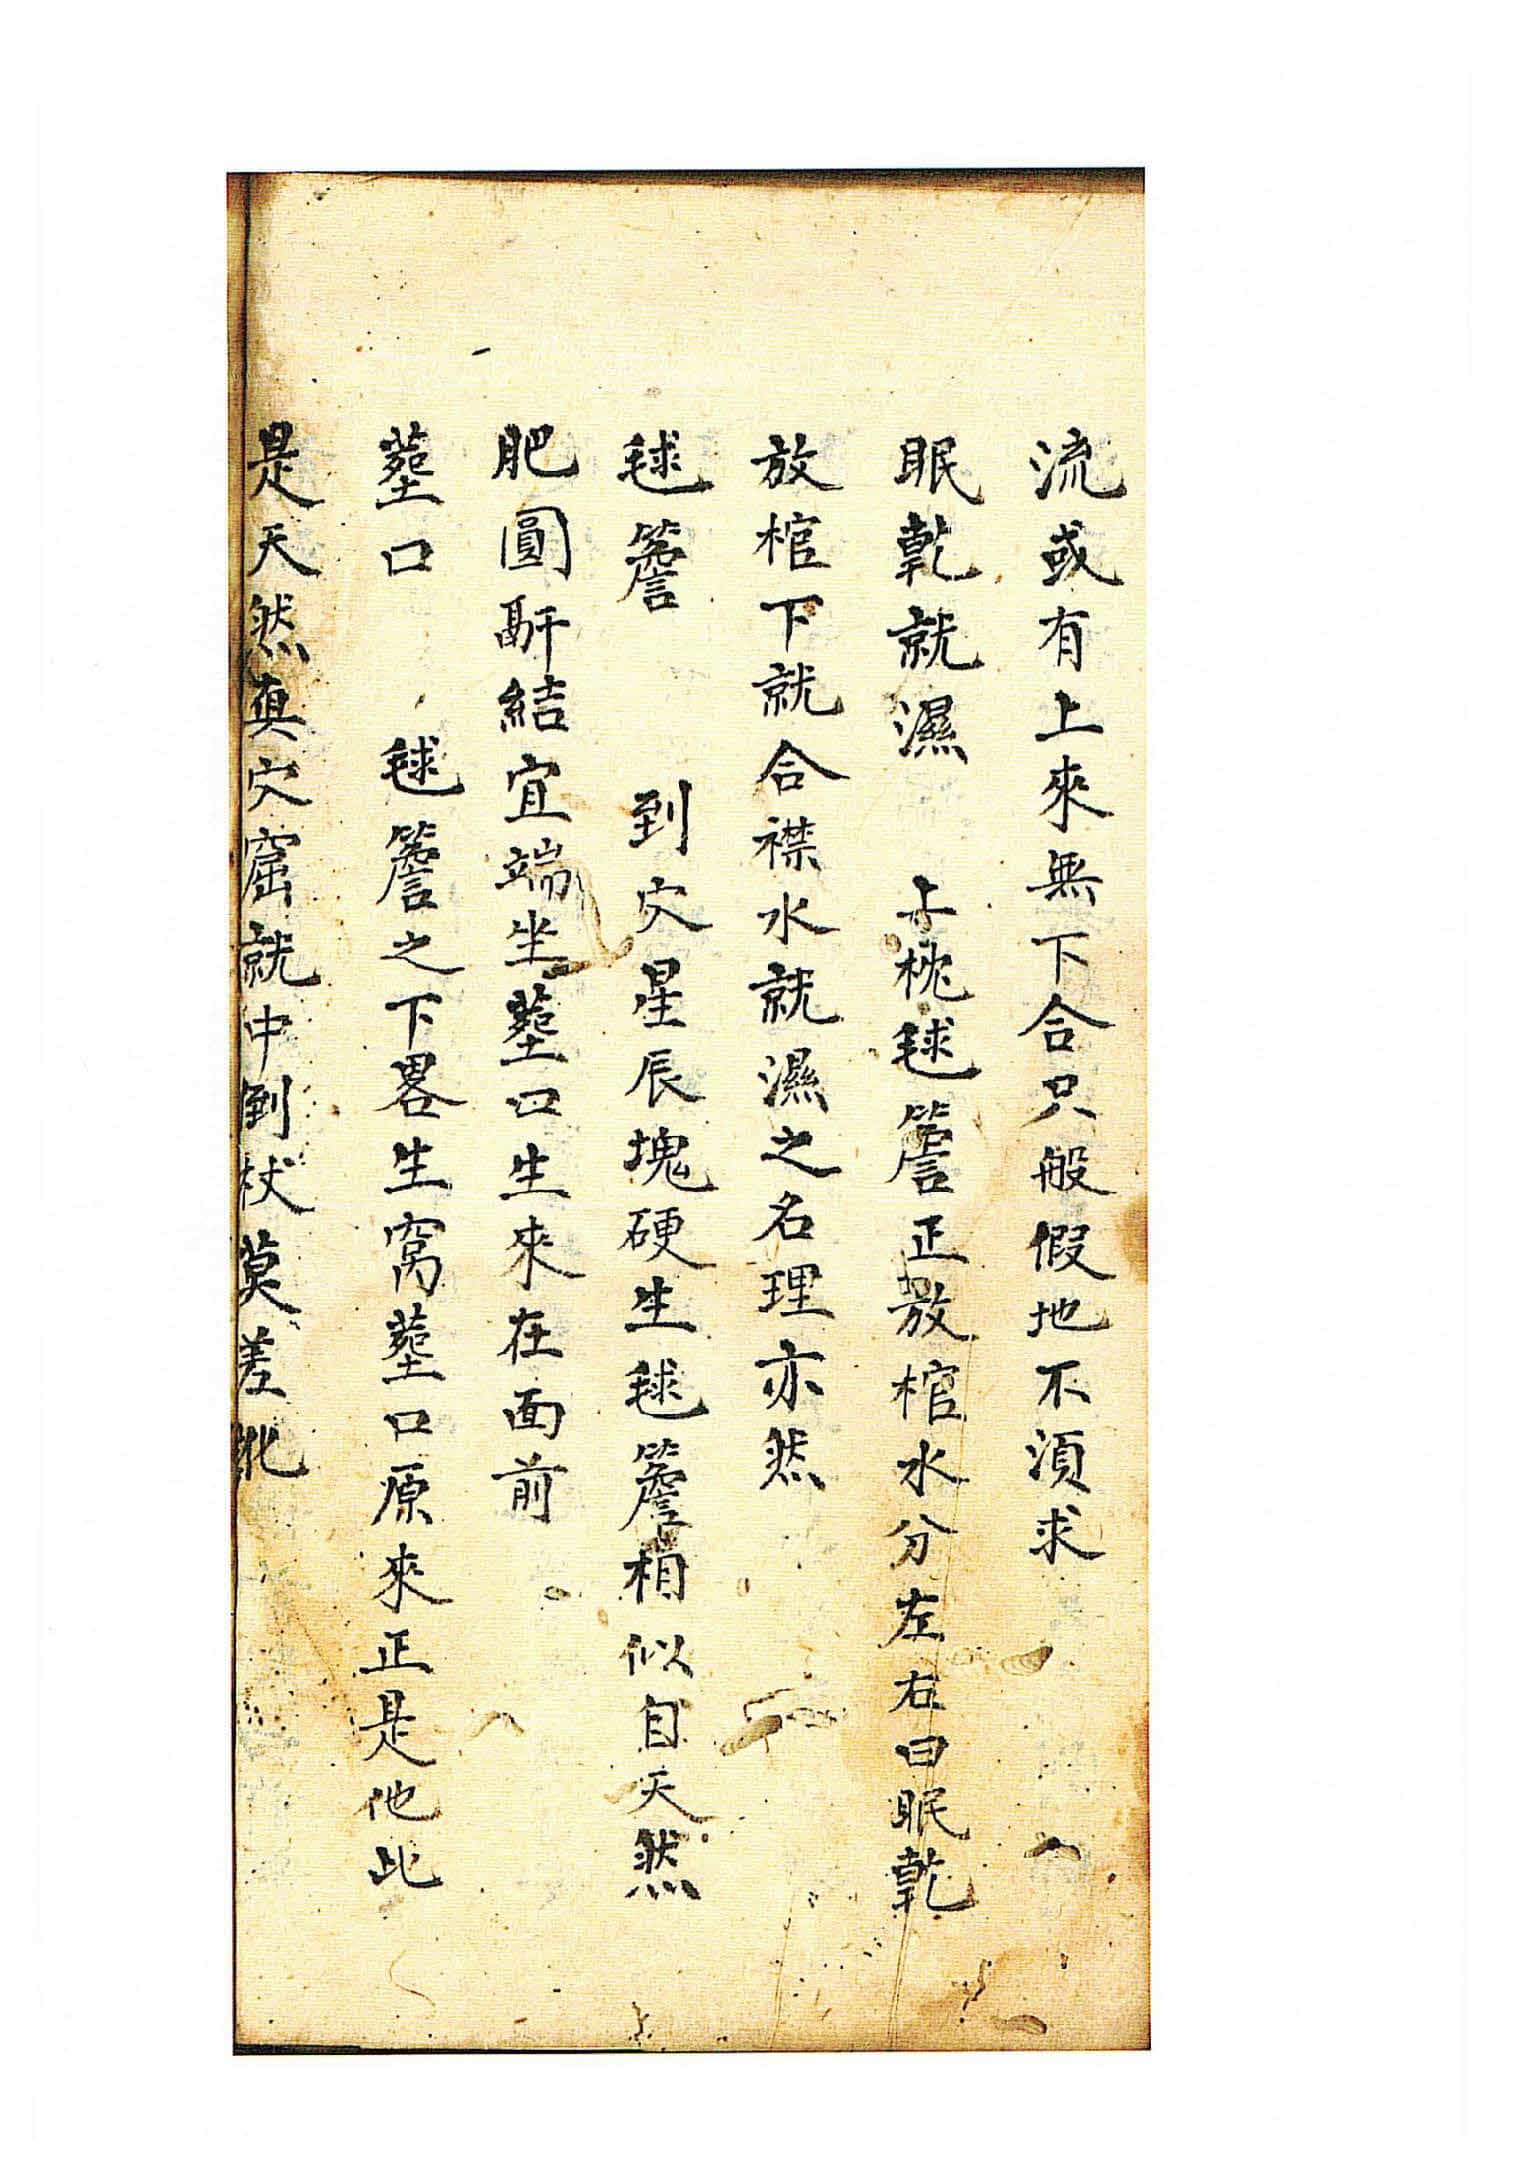 流或有上來無下合只般假地不須求
眠乾就濕　上枕毬簷正放棺水分左右曰眠乾
放棺下就合襟水就濕之名理亦然
毬簷　到穴星辰塊硬生毬簷相似自天然
肥圓酙結宜端坐塟口生來在面前
塟口　毬簷之下畧生窩塟口原來正是他此
是天然真穴窟就中倒杖莫差